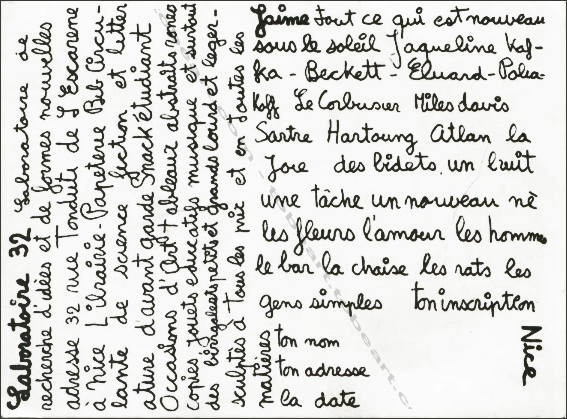 Laboratoire 32 Laboratoire de
recherche d'idées et de formes nouvelles
adresse 32 rue Tonduti de L'Escarene
à Nice Librairie-Papeterie Bib Circu-
lante de science fiction et litter
ature d'avant garde Snack étudiant
Occasions d'Art tableaux abstraits ronéo
copies jouets educatifs musique et surtout
des bingoleets petits et grands lourd et leger-
sculptés à Tous les prix et en toutes les
matières
J'aime tout ce qui est nouveau
sous le soleil Jaqueline Kaf-
ka - Beckett - Eluard - Polia-
Koff Le Corbusier Miles davis
Sartre Hartoung Atlan la
Joie des bidets un bruit
une tâche un nouveau né
les fleurs l'amour les hommes
le bar la chaise les rats les
gens simples ton inscription
ton nom
ton adresse
la date
Nice